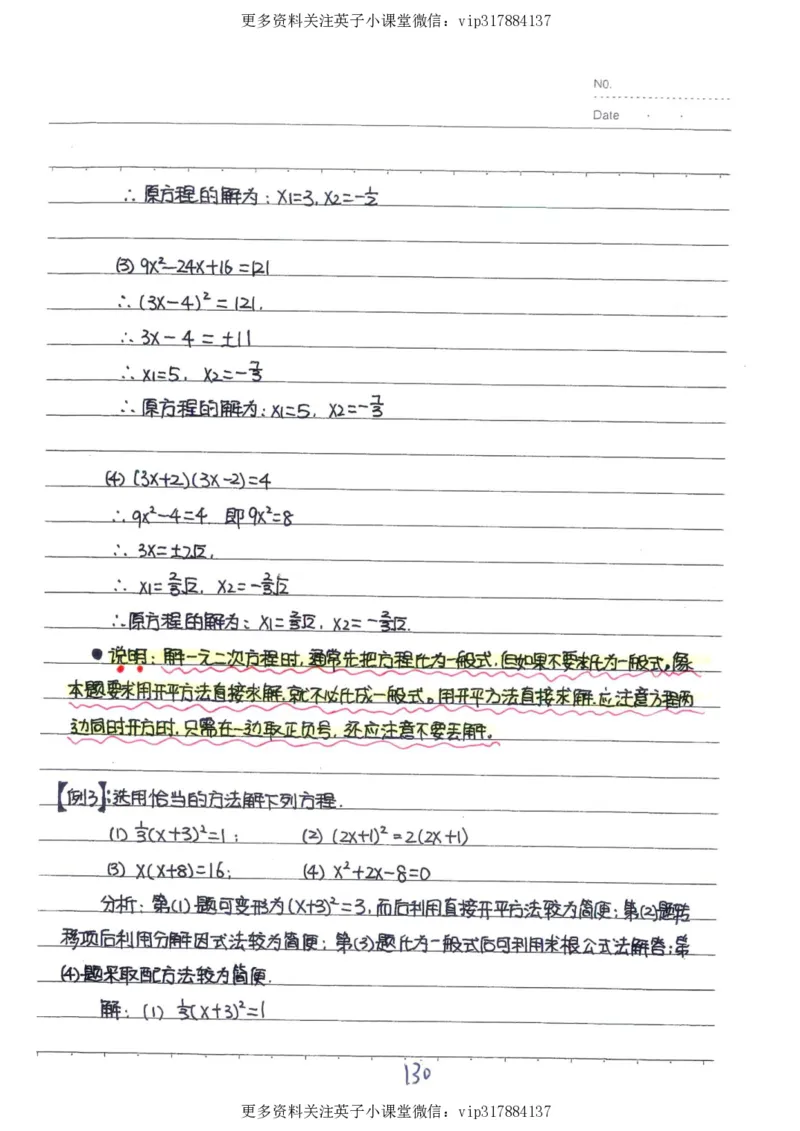 更多资料关注英子小课堂微信：vip317884137
NO.
Date
∴原方程的解为：x1=3, x2=-1/2
(3) 9x²-24x+16=121
∴(3x-4)²=121.
∴3x-4=±11
∴x1=5, x2=-7/3
∴原方程的解为：x1=5, x2=-7/3
(4) (3x+2)(3x-2)=4
∴9x²-4=4 即9x²=8
∴3x=±2√2,
∴x1=2/3√2, x2=-2/3√2
∴原方程的解为：x1=2/3√2, x2=-2/3√2.
●说明：解一元二次方程时,通常先把方程化为一般式,但如果不要求化为一般式。像
本题要求用开平方法直接求解,就不必化成一般式。用开平方法直接求解,应注意方程两
边同时开方时,只需在一边取正负号,还应注意不要丢解。
【例3】：选用恰当的方法解下列方程.
(1) 1/3(x+3)²=1； (2) (2x+1)²=2(2x+1)
(3) x(x+8)=16； (4) x²+2x-8=0
分析：第(1)题可变形为(x+3)²=3,而后利用直接开平方法较为简便；第(2)题转
移项后利用分解因式法较为简便；第(3)题化为一般式后可利用求根公式法解答；第
(4)题采取配方法较为简便.
解：(1) 1/3(x+3)²=1
130
更多资料关注英子小课堂微信：vip317884137